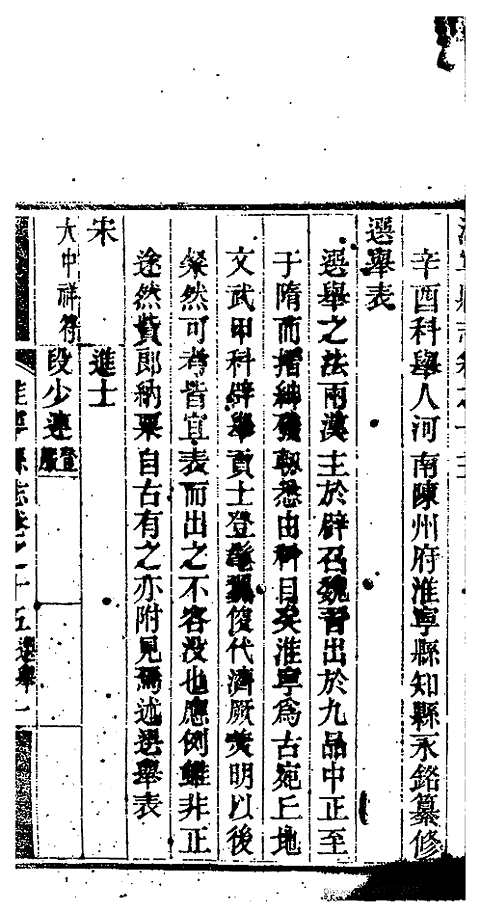 淮寧縣志卷之十五
辛酉科舉人河南陳州府淮寧縣知縣永銘纂修
選舉表
選舉之法兩漢主於辟召魏晉出於九品中正至
于隋而搢紳發軔悉由科目矣淮寧爲古宛丘地
文武甲科辟舉貢士登髦俊代濟厥美明以後
粲然可考皆宜表而出之不容没也應例雖非正
途然貲郎納粟自古有之亦附見焉述選舉表
宋 進士
大中祥符 段少連 登服
淮寧縣志卷之十五 選舉 一